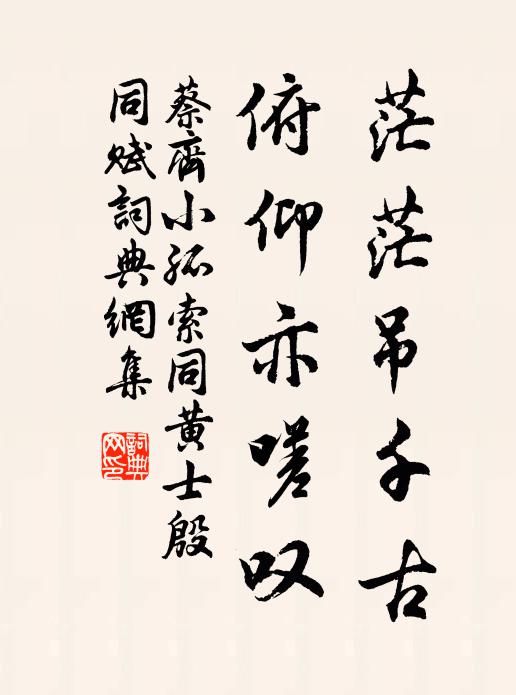 茫茫吊千古
俯仰亦嗟叹
蔡齊小孤索同黄士殷
同赋詞典網集
詞典网印